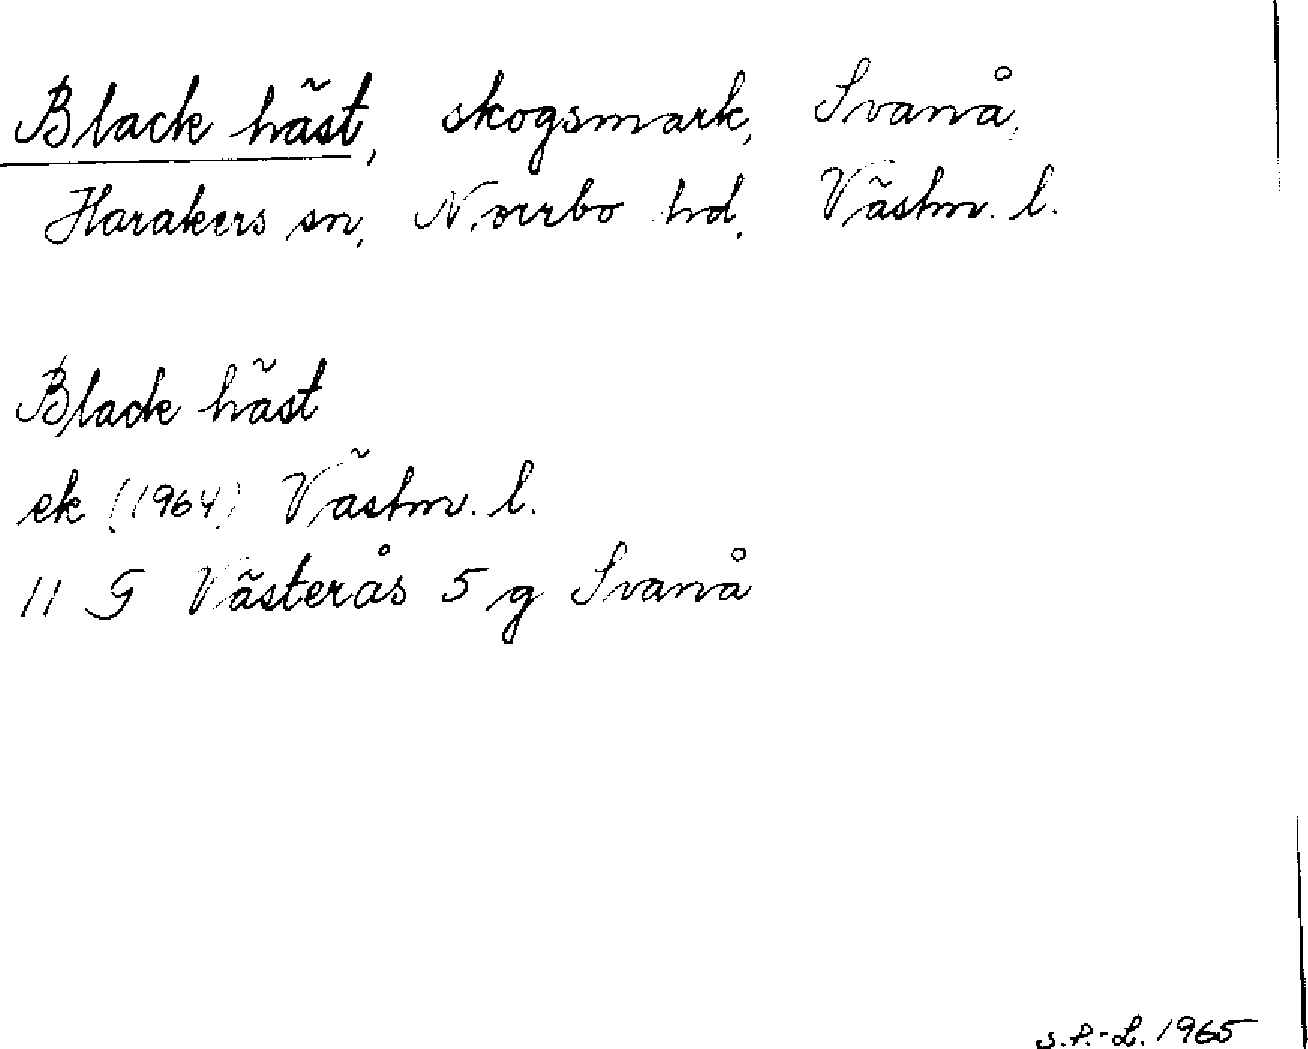 Black häst, skogsmark, Svanå,
Harakers sn, Norrbo hd, Västm. l.
Black häst
ek (1964) Västm. l.
11 G Västerås 5 g Svanå
S.P.-L. 1965